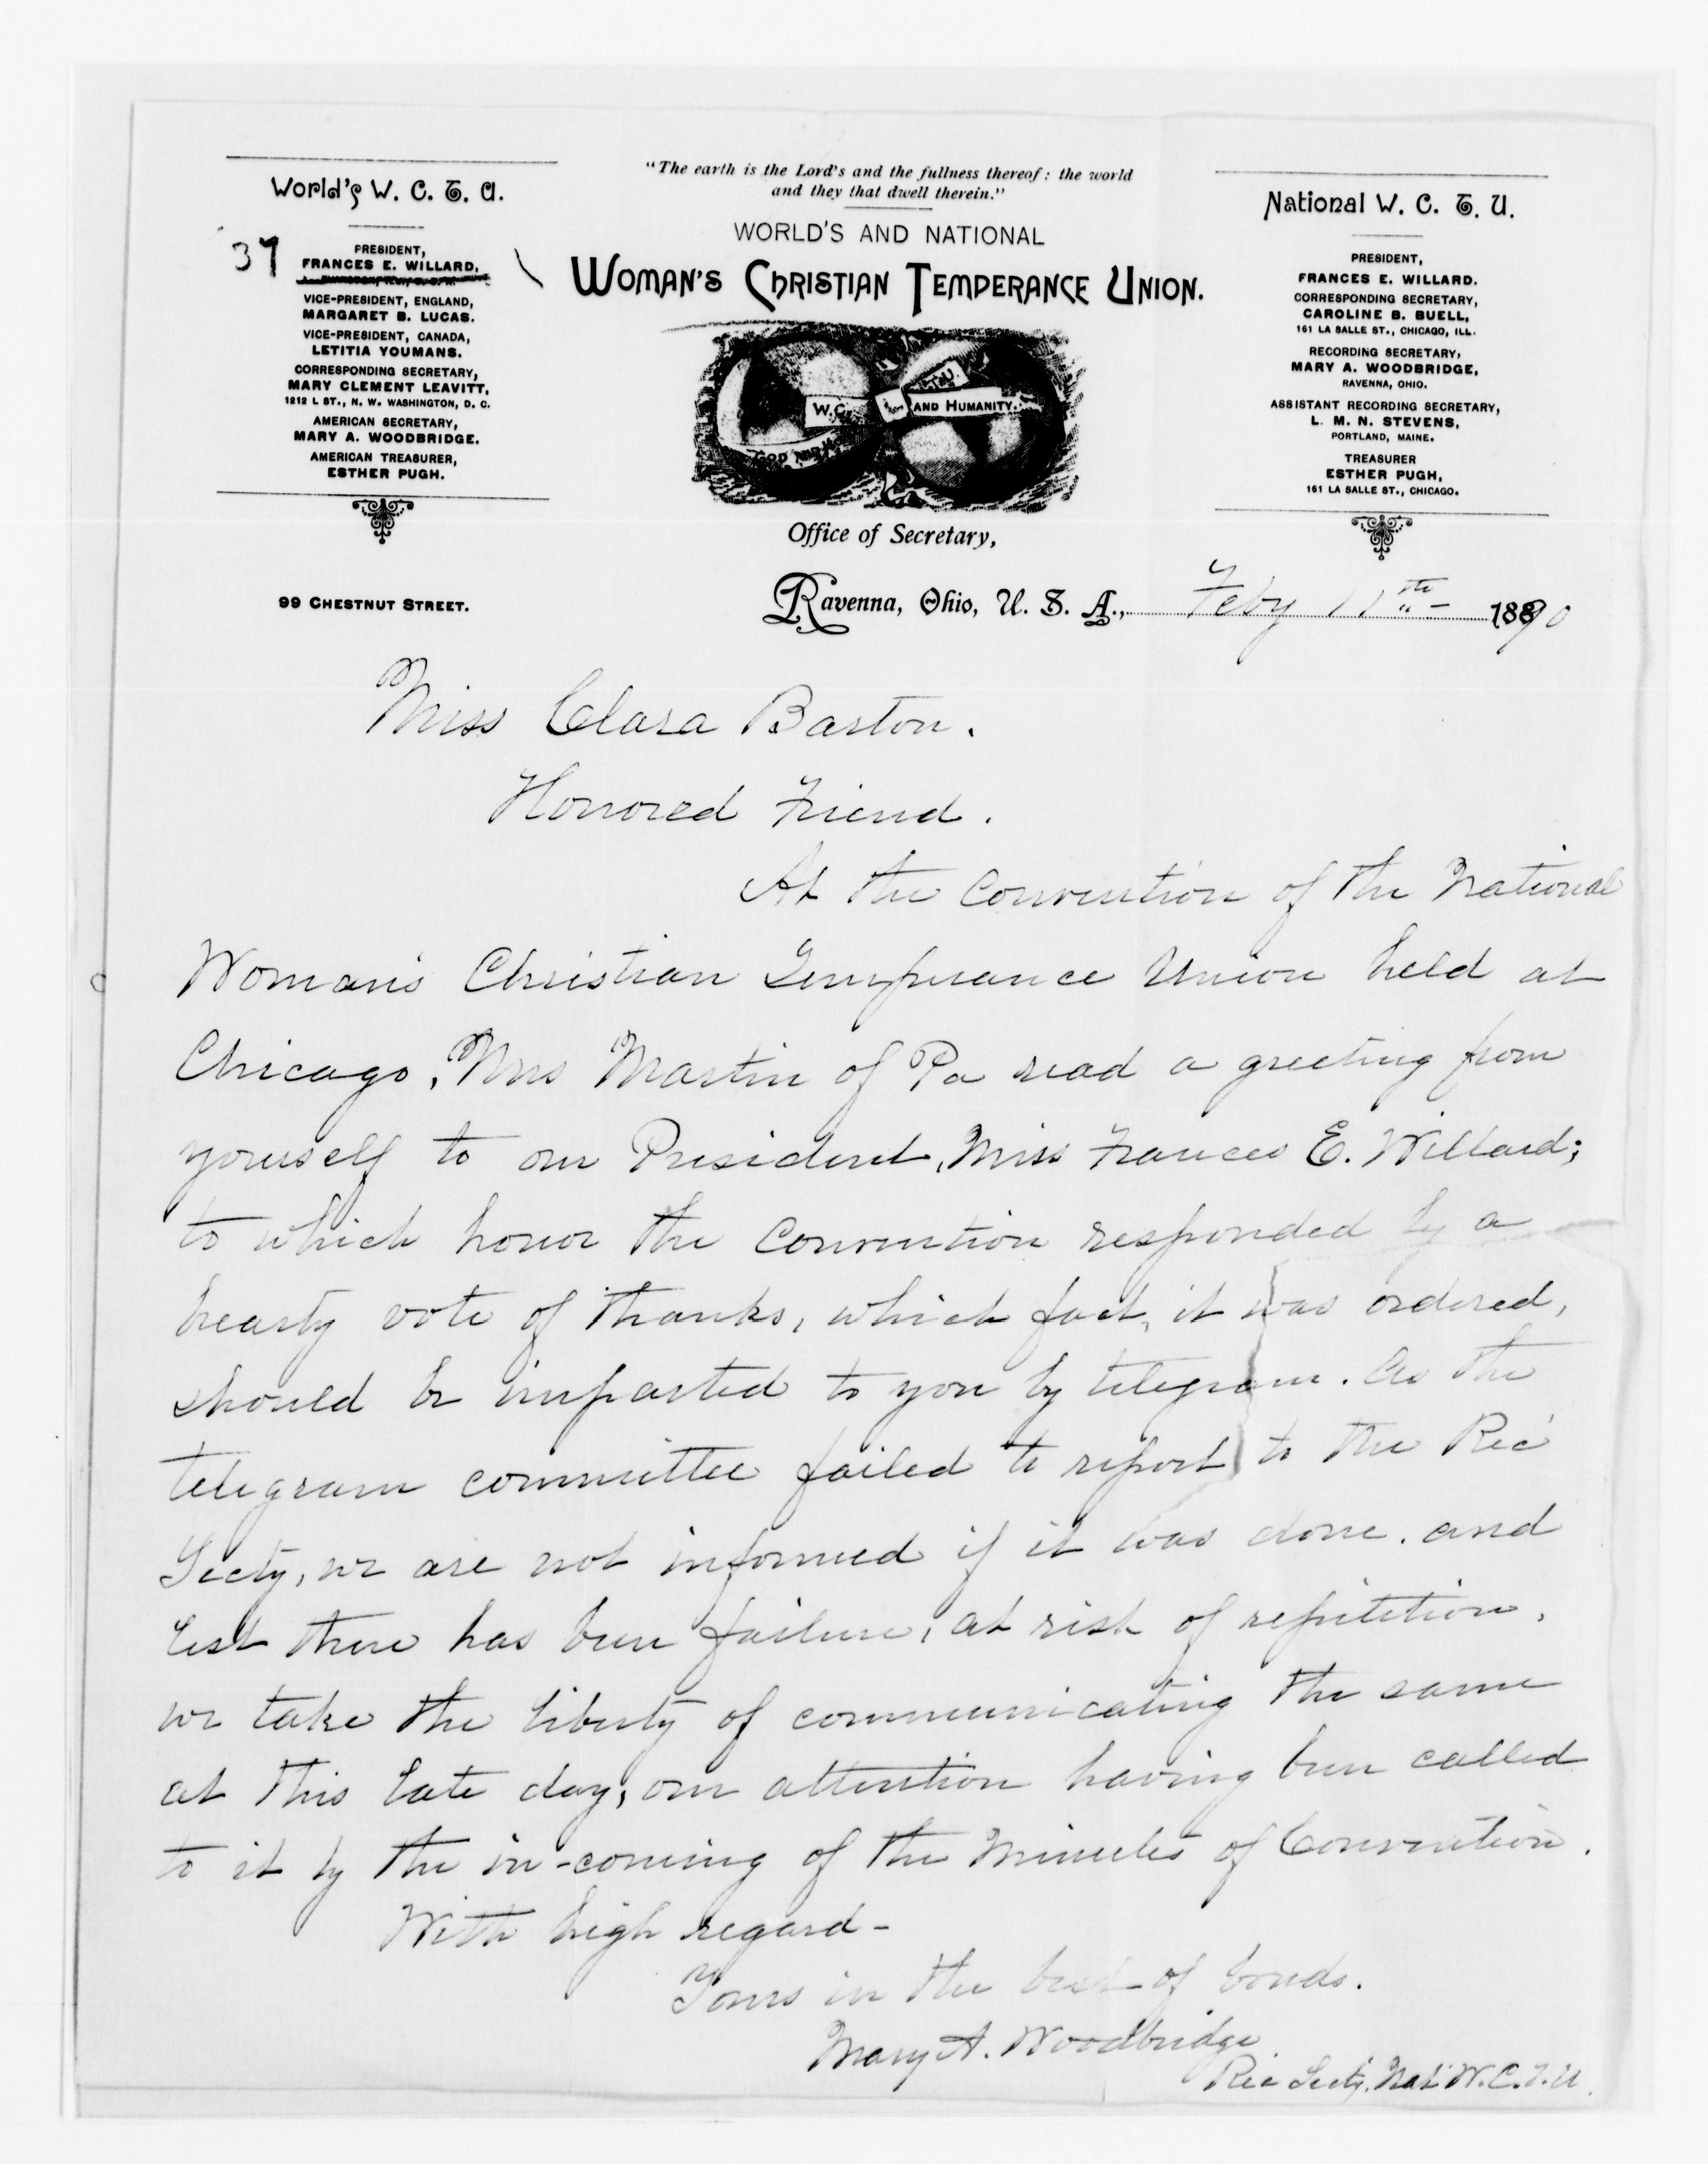 "The earth is the Lord's and the fullness thereof: the world
and they that dwell therein."
WORLD'S AND NATIONAL
WOMAN'S CHRISTIAN TEMPERANCE UNION.
World's W. C. T. U.
37
PRESIDENT,
FRANCES E. WILLARD,
VICE-PRESIDENT, ENGLAND,
MARGARET B. LUCAS.
VICE-PRESIDENT, CANADA,
LETITIA YOUMANS.
CORRESPONDING SECRETARY,
MARY CLEMENT LEAVITT,
1212 L ST., N. W. WASHINGTON, D. C.
AMERICAN SECRETARY,
MARY A. WOODBRIDGE.
AMERICAN TREASURER,
ESTHER PUGH.
W.C.
T.U.
AND HUMANITY.
GOD
National W. C. T. U.
PRESIDENT,
FRANCES E. WILLARD.
CORRESPONDING SECRETARY,
CAROLINE B. BUELL,
161 LA SALLE ST., CHICAGO, ILL.
RECORDING SECRETARY,
MARY A. WOODBRIDGE,
RAVENNA, OHIO.
ASSISTANT RECORDING SECRETARY,
L. M. N. STEVENS,
PORTLAND, MAINE.
TREASURER
ESTHER PUGH,
161 LA SALLE ST., CHICAGO.
Office of Secretary,
99 CHESTNUT STREET.
Ravenna, Ohio, U. S. A., Feby 11th 1890
Miss Clara Barton.
Honored Friend.
At the Convention of the National
Woman's Christian Temperance Union held at
Chicago, Mrs Martin of Pa read a greeting from
yourself to our President, Miss Frances E. Willard;
to which honor the Convention responded by a
hearty vote of thanks, which fact, it was ordered,
should be imparted to you by telegram. As the
telegram committee failed to report to the Rec
Secty, we are not informed if it was done. and
lest there has been failure, at risk of repitition,
we take the liberty of communicating the same
at this late day, our attention having been called
to it by the in-coming of the Minutes of Convention.
With high regard -
Yours in the best of bonds.
Mary A. Woodbridge
Rec Secty. Nat. W.C.T.U.